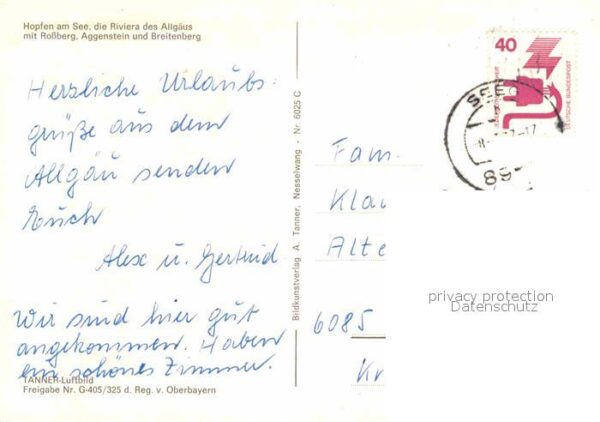 Hopfen am See, die Riviera des Allgäus
mit Roßberg, Aggenstein und Breitenberg
Herzliche Urlaubs-
grüße aus dem
Allgäu senden
Euch
Alex u. Gertrud
Wir sind hier gut
angekommen. Haben
ein schönes Zimmer.
TANNER-Luftbild
Freigabe Nr. G-405/325 d. Reg. v. Oberbayern
Bildkunstverlag A. Tanner, Nesselwang - Nr. 6025 C
40
DEUTSCHE BUNDESPOST
SEEG
-17
89
Fam.
Kla
Alte
6085
Kr
privacy protection
Datenschutz